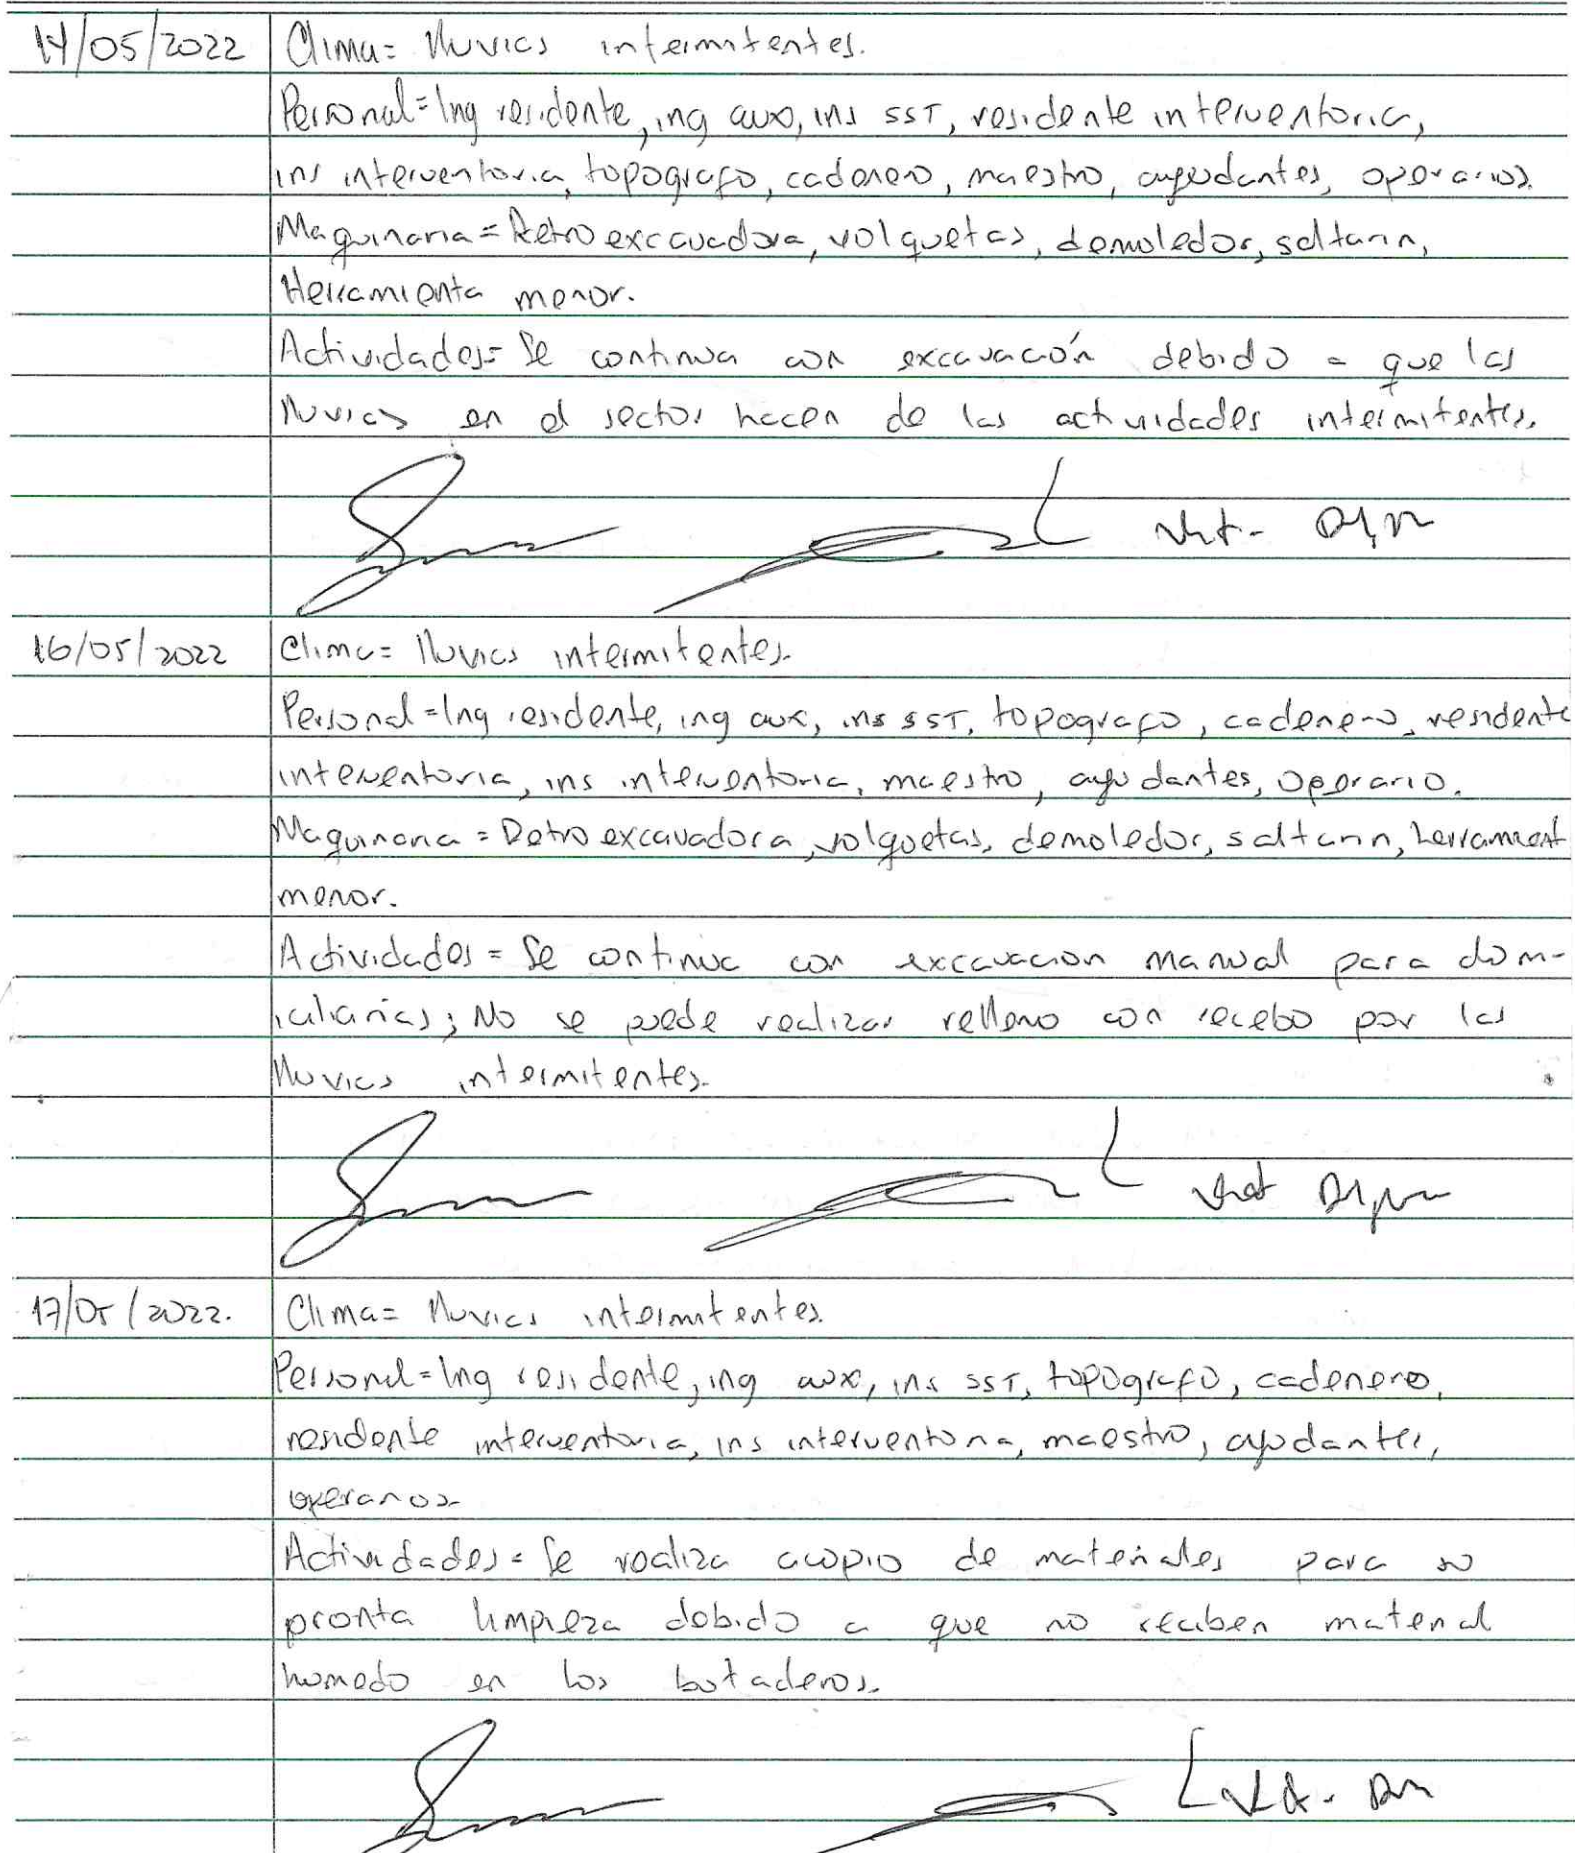 14/05/2022 Clima= lluvias intermitentes.
Personal=Ing residente, ing aux, ins SST, residente interventoria,
ins interventoria, topografo, cadenero, maestro, ayudantes, operarios.
Maquinaria= Retroexcavadora, volquetas, demoledor, saltarin,
Herramienta menor.
Actividades= Se continua con excavación debido a que las
lluvias en el sector hacen de las actividades intermitentes.
16/05/2022 Clima= lluvias intermitentes.
Personal=Ing residente, ing aux, ins SST, topografo, cadenero, residente
interventoria, ins interventoria, maestro, ayudantes, operario.
Maquinaria = Retroexcavadora, volquetas, demoledor, saltarin, herramient
menor.
Actividades = Se continua con excavacion manual para dom-
iciliarias; No se puede realizar relleno con recebo por las
lluvias intermitentes.
17/05/2022. Clima= lluvias intermitentes.
Personal=Ing residente, ing aux, ins SST, topografo, cadenero,
residente interventoria, ins interventoria, maestro, ayudantes,
operarios.
Actividades= Se realiza acopio de materiales para su
pronta limpieza debido a que no reciben material
humedo en los botaderos.